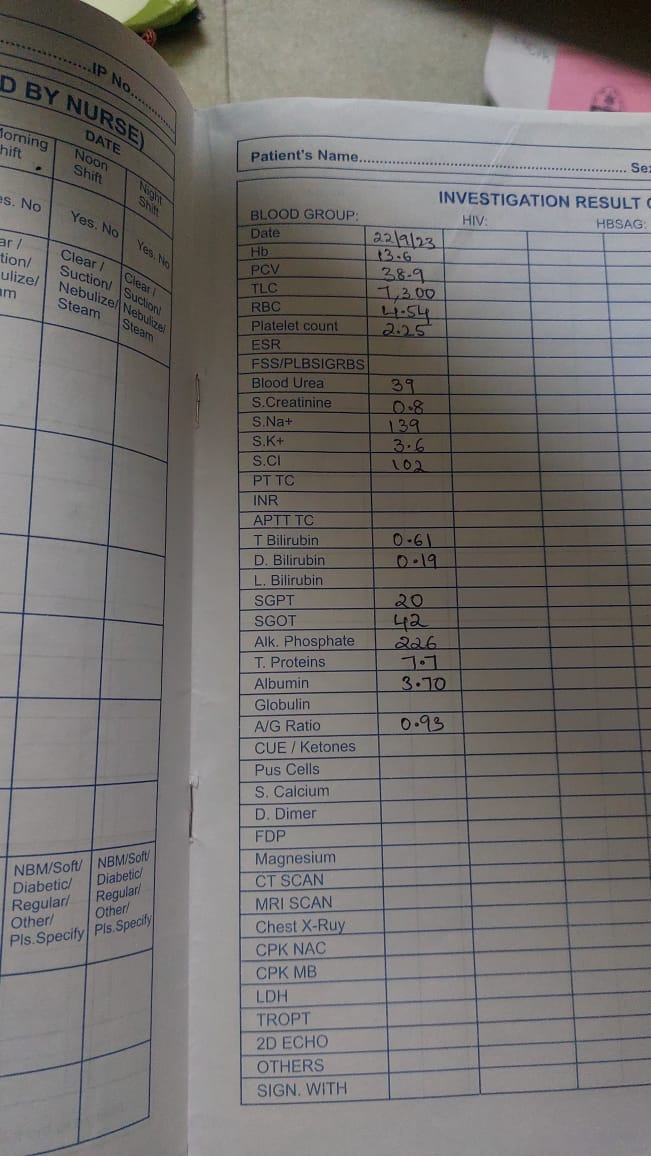 IP No...............
D BY NURSE)
DATE
Morning Shift
Noon Shift
Night Shift
es. No
Yes. No
Yes. No
ar /
tion/
ulize/
am
Clear /
Suction/
Nebulize/
Steam
Clear /
Suction/
Nebulize/
Steam
NBM/Soft/
Diabetic/
Regular/
Other/
Pls.Specify
NBM/Soft/
Diabetic/
Regular/
Other/
Pls.Specify
Patient's Name............................................................ Sex
INVESTIGATION RESULT
BLOOD GROUP: HIV: HBSAG:
Date 22/9/23
Hb 13.6
PCV 38.9
TLC 7,300
RBC 4.54
Platelet count 2.25
ESR
FSS/PLBSIGRBS
Blood Urea 39
S.Creatinine 0.8
S.Na+ 139
S.K+ 3.6
S.CI 102
PT TC
INR
APTT TC
T Bilirubin 0.61
D. Bilirubin 0.19
L. Bilirubin
SGPT 20
SGOT 42
Alk. Phosphate 226
T. Proteins 7.7
Albumin 3.70
Globulin
A/G Ratio 0.93
CUE / Ketones
Pus Cells
S. Calcium
D. Dimer
FDP
Magnesium
CT SCAN
MRI SCAN
Chest X-Ruy
CPK NAC
CPK MB
LDH
TROPT
2D ECHO
OTHERS
SIGN. WITH